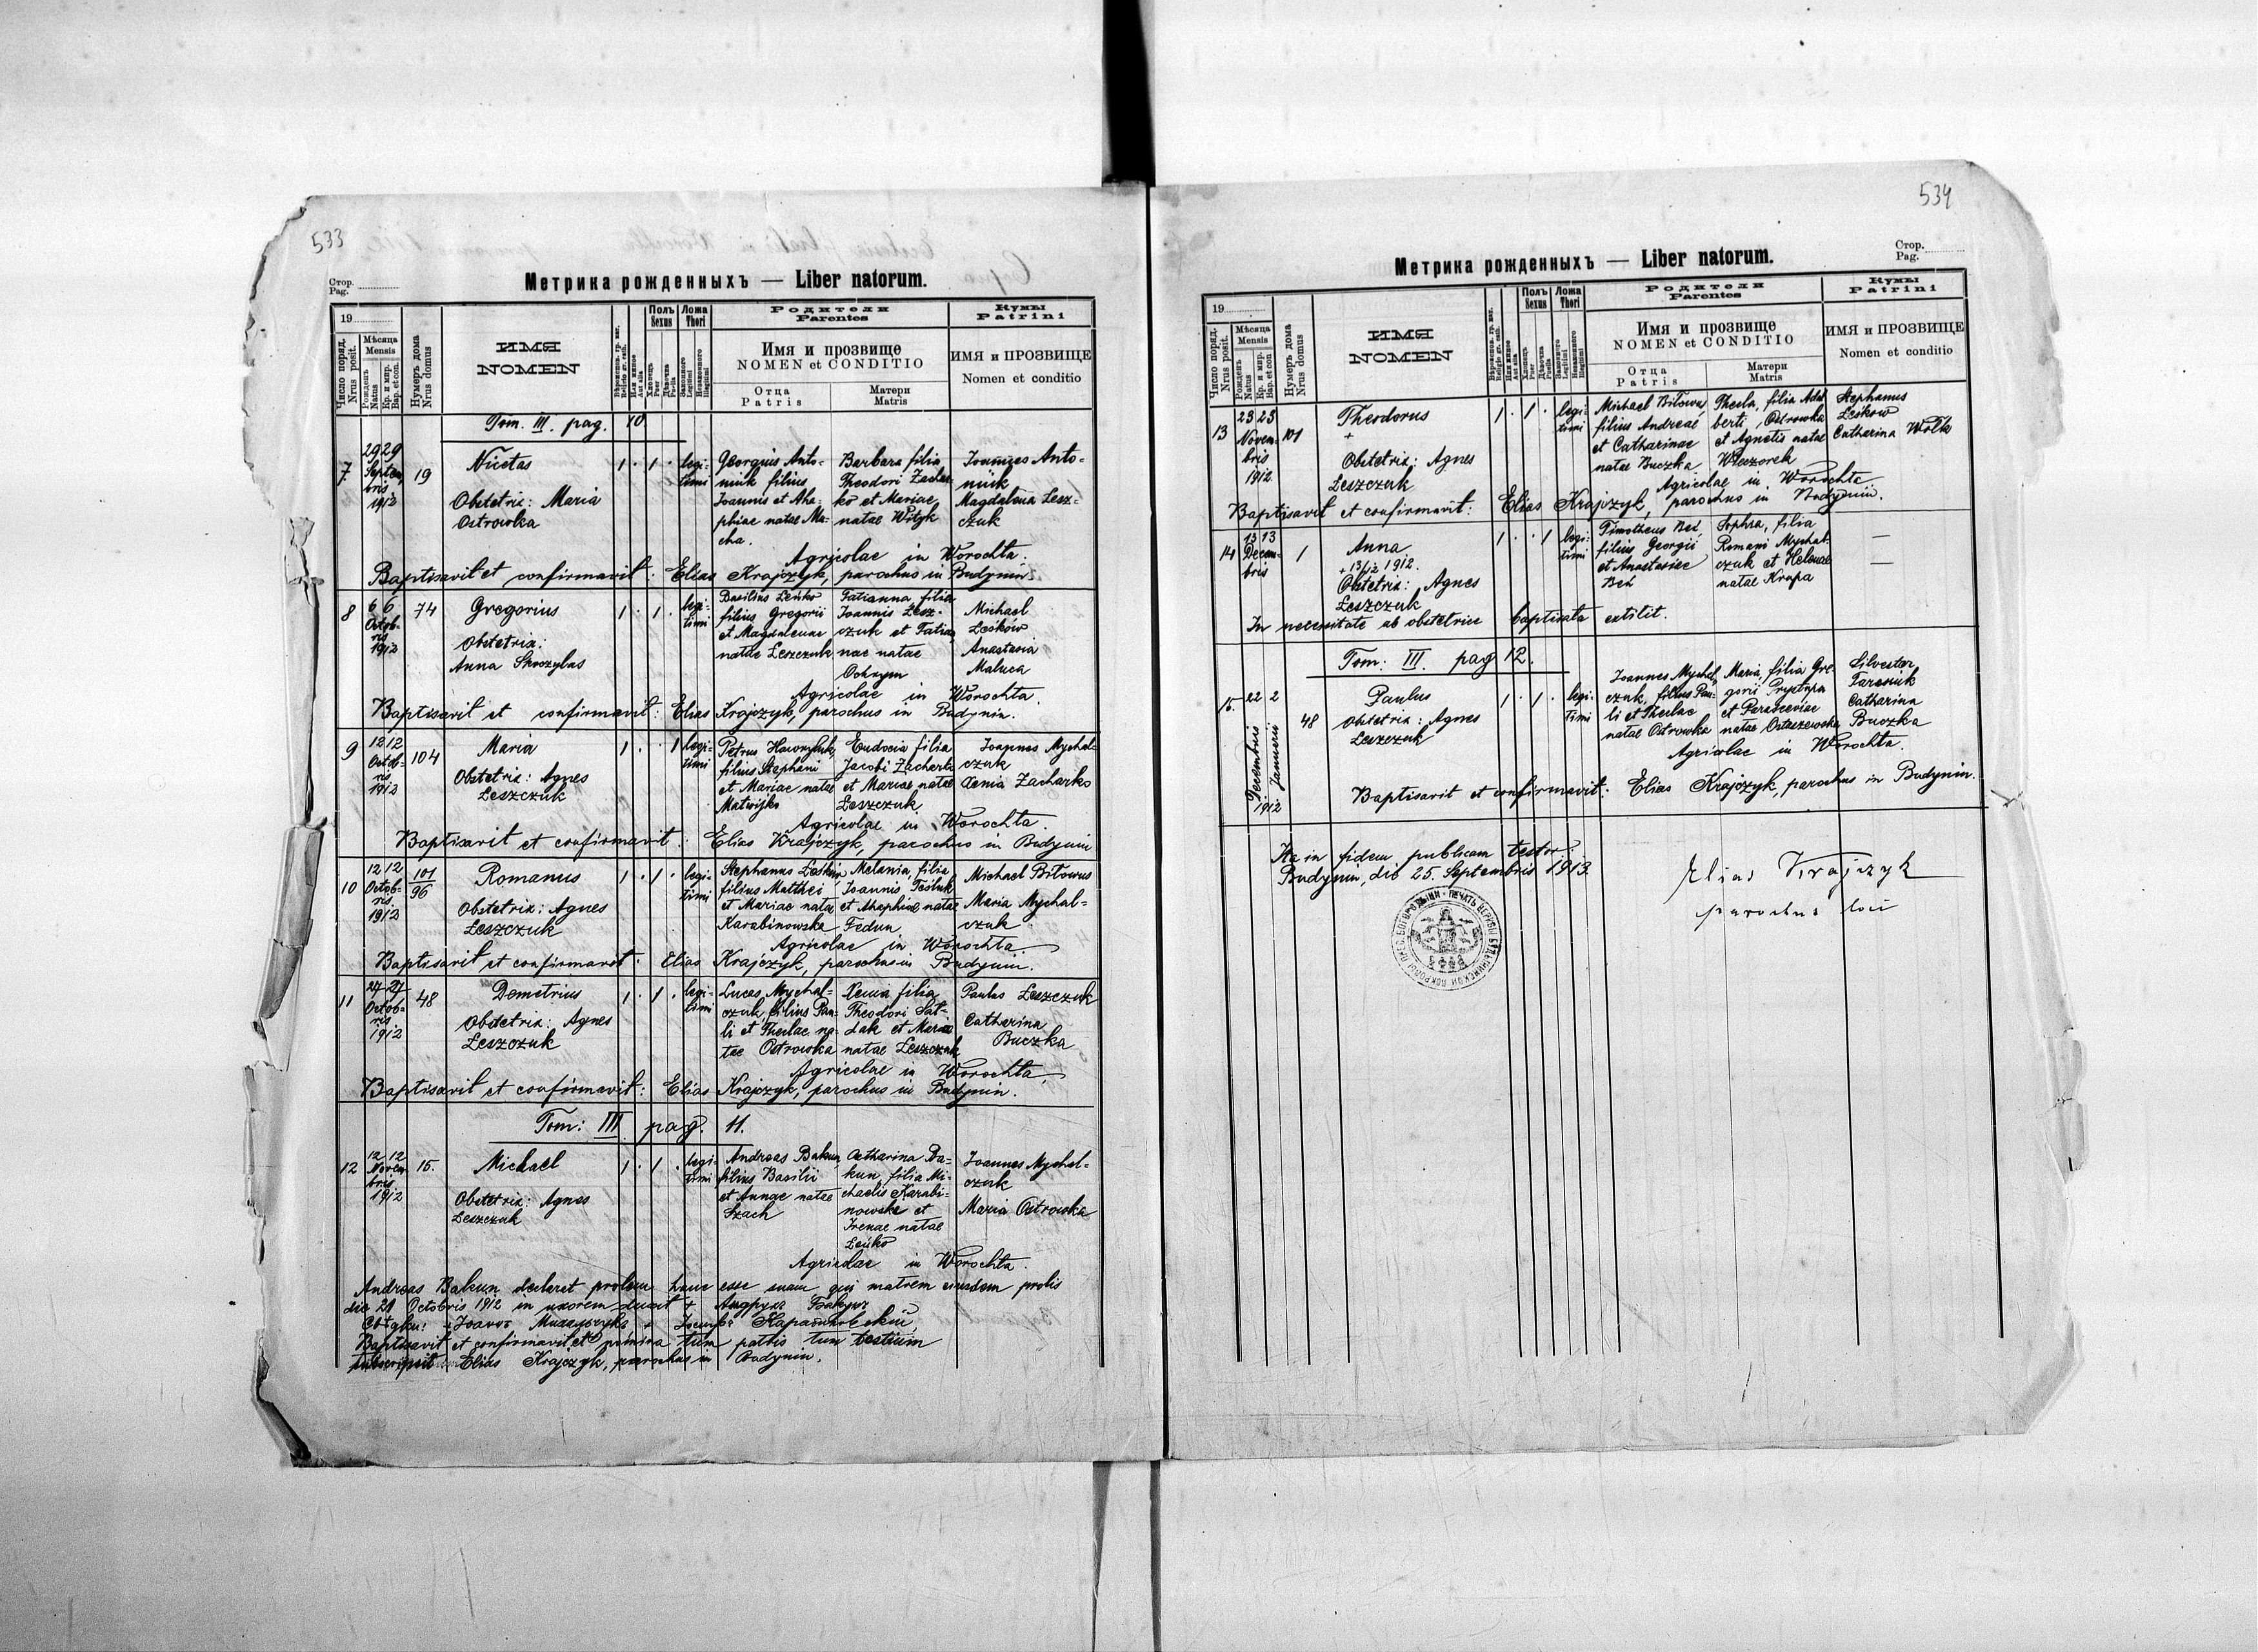 533
Стор.
Pag.
Метрика рожденныхъ — Liber natorum.
19
Число поряд.
Nrus posit.
Мѣсяца
Mensis
Рожденъ
Natus
Кр. и мир.
Bap. et con.
Нумеръ дома
Nrus domus
ИМЯ
NOMEN
Полъ
Sexus
Ложа
Thori
Родители
Parentes
Имя и прозвище
NOMEN et CONDITIO
Отца
Patris
Матери
Matris
Кумы
Patrini
ИМЯ и ПРОЗВИЩЕ
Nomen et conditio
Tom. III. pag. 10.
7. 29 29 Septembris 1912 19
Nicetas
Obstetrix: Maria
Ostrowka
1 . 1 . legitimi
Georgius Anto-
niuk filius
Joannis et Aha-
phiae natae Ma-
cha.
Barbara filia
Theodori Zachar-
ko et Mariae
natae Wityk
Joannes Anto-
niuk
Magdalena Lesz-
czuk
Agricolae in Worochta.
Baptisavit et confirmavit: Elias Krajczyk, parochus in Budynin.
8 6 6 Octobris 1912 74
Gregorius
Obstetrix:
Anna Skoczylas
1 . 1 . legitimi
Basilius Leńko
filius Gregorii
et Magdalenae
natae Leszczuk
Tatianna filia
Joannis Lesz-
czuk et Tatian-
nae natae
Ochrym
Michael
Leśków
Anastasia
Maluca
Agricolae in Worochta.
Baptisavit et confirmavit: Elias Krajczyk, parochus in Budynin.
9 12 12 Octobris 1912 104
Maria
Obstetrix: Agnes
Leszczuk
1 . . 1 legitimi
Petrus Hawryluk,
filius Stephani
et Mariae natae
Matwijko
Eudocia filia
Jacobi Zacharko
et Mariae natae
Leszczuk
Joannes Mychal-
czuk
Xenia Zacharko
Agricolae in Worochta.
Baptisavit et confirmavit: Elias Krajczyk, parochus in Budynin
10 12 12 Octobris 1912 101/96
Romanus
Obstetrix: Agnes
Leszczuk
1 . 1 . legitimi
Stephanus Leśkiw,
filius Matthei
et Mariae natae
Karabinowska
Melania, filia
Joannis Teśluk
et Ahaphiae natae
Fedun
Michael Bitowus
Maria Mychal-
czuk
Agricolae in Worochta
Baptisavit et confirmavit: Elias Krajczyk, parochus in Budynin.
11 27 27 Octobris 1912 48
Demetrius
Obstetrix: Agnes
Leszczuk
1 . 1 . legitimi
Lucas Mychal-
czuk, filius Pau-
li et Theclae na-
tae Ostrowka
Xenia filia
Theodori Sat-
dak et Mariae
natae Leszczuk
Paulus Leszczuk
Catharina
Buczka
Agricolae in Worochta.
Baptisavit et confirmavit: Elias Krajczyk, parochus in Budynin.
Tom: III. pag. 11.
12 12 12 Novembris 1912 15.
Michael
Obstetrix: Agnes
Leszczuk
1 . 1 . legitimi
Andreas Bakun,
filius Basilii
et Annae natae
Szach
Catharina Ba-
kun, filia Mi-
chaelis Karabi-
nowske et
Irenae natae
Leńko
Joannes Mychal-
czuk
Maria Ostrowka
Agricolae in Worochta.
Andreas Bakun declaret prolem hanc esse suam qui matrem eiusdem prolis
die 21 Octobris 1912 in uxorem duxit + Андрухъ Бакунъ
Свѣдки: + Іоаннъ Михальчукъ +
Baptisavit et confirmavit et nomina tum patris tum testium
subscripsit Elias Krajczyk, parochus in Budynin.
534
Стор.
Pag.
Метрика рожденныхъ — Liber natorum.
19
Число поряд.
Nrus posit.
Мѣсяца
Mensis
Рожденъ
Natus
Кр. и мир.
Bap. et con
Нумеръ дома
Nrus domus
ИМЯ
NOMEN
Полъ
Sexus
Ложа
Thori
Родители
Parentes
Имя и прозвище
NOMEN et CONDITIO
Отца
Patris
Матери
Matris
Кумы
Patrini
ИМЯ и ПРОЗВИЩЕ
Nomen et conditio
13 23 23 Novembris 1912 101
Theodorus
+
Obstetrix: Agnes
Leszczuk
1 . 1 . legitimi
Michael Bitowus,
filius Andreae
et Catharinae
natae Buczka
Thecla, filia Adal-
berti, Ostrowka
et Agnetis natae
Wieczorek
Stephanus
Leśkow
Catharina Wolk
Agricolae in Worochta
Baptisavit et confirmavit: Elias Krajczyk, parochus in Budynin.
14 13 13 Decembris 1
Anna
+ 13/12 1912.
Obstetrix: Agnes
Leszczuk
1 . . 1 legitimi
Timotheus Deć,
filius Georgii
et Anastasiae
Deć
Sophia, filia
Romani Mychal-
czuk et Helenae
natae Krupa
—
—
In necessitate ab obstetrice baptisata extitit.
Tom: III. pag 12.
15. 22 Decembris 2 Januarii 1912 48
Paulus
Obstetrix: Agnes
Leszczuk
1 . 1 . legitimi
Joannes Mychal-
czuk, filius Pau-
li et Theclae
natae Ostrowka
Maria, filia Gre-
gorii Prystupa
et Parasceviae
natae Ostaszewska
Silvester
Tarasiuk
Catharina
Buczka
Agricolae in Worochta.
Baptisavit et confirmavit: Elias Krajczyk, parochus in Budynin.
Ita in fidem publicam testor.
Budynin, die 25. Septembris 1913.
Elias Krajczyk
parochus loci